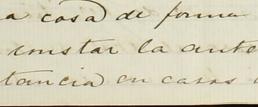 a cosa de forma
constar la ante
tancia en casos